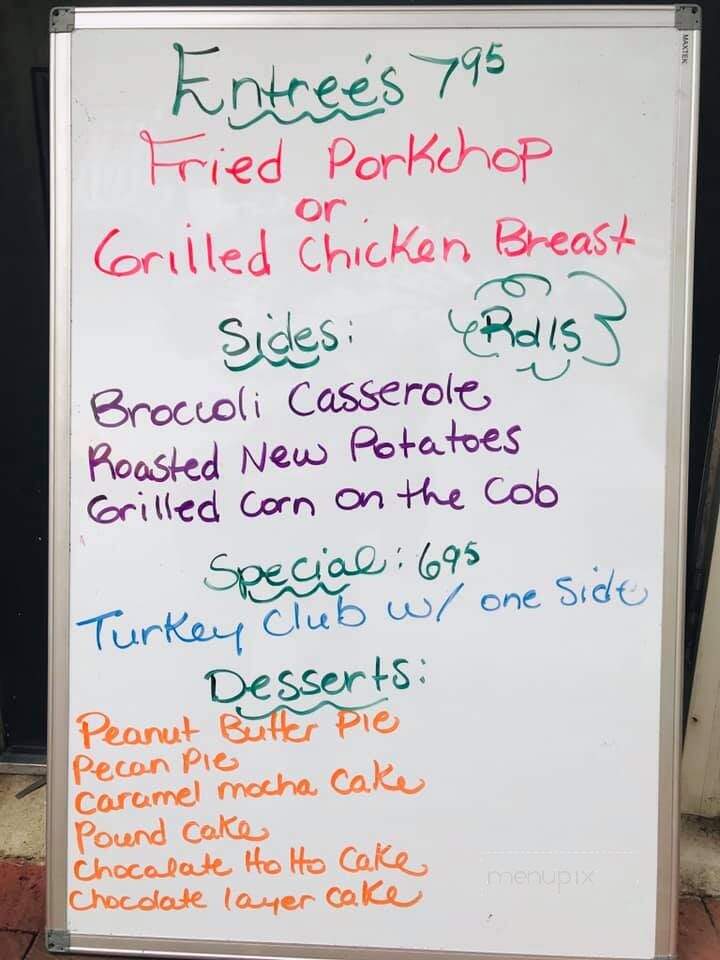 MAXTEK
Entreés 7 95
Fried Porkchop
or
Grilled Chicken Breast
Sides:
Rolls
Broccoli Casserole
Roasted New Potatoes
Grilled Corn on the Cob
Special: 6 95
Turkey Club w/ one side
Desserts:
Peanut Butter Pie
Pecan Pie
Caramel mocha Cake
Pound Cake
Chocolate Ho Ho Cake
Chocolate layer cake
menupix